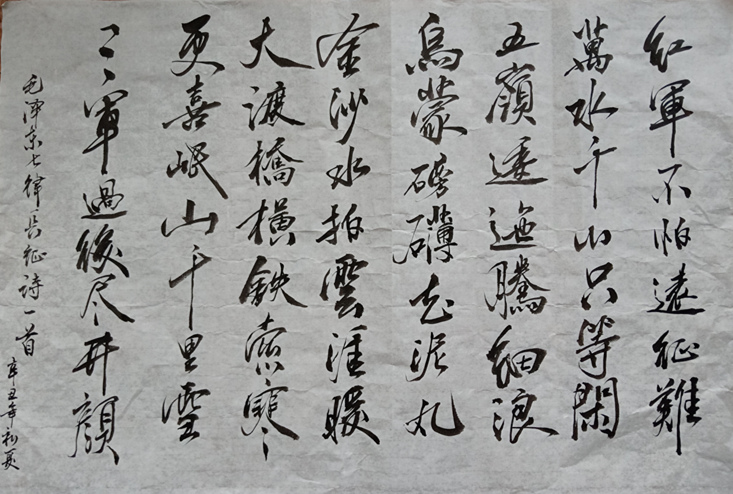 紅軍不怕遠征難
萬水千山只等閑
五嶺逶迤騰細浪
烏蒙磅礴走泥丸
金沙水拍雲涯暖
大渡橋橫鉄索寒
更喜岷山千里雪
三軍過後尽開顔
毛泽東七律長征詩一首
辛丑年初夏